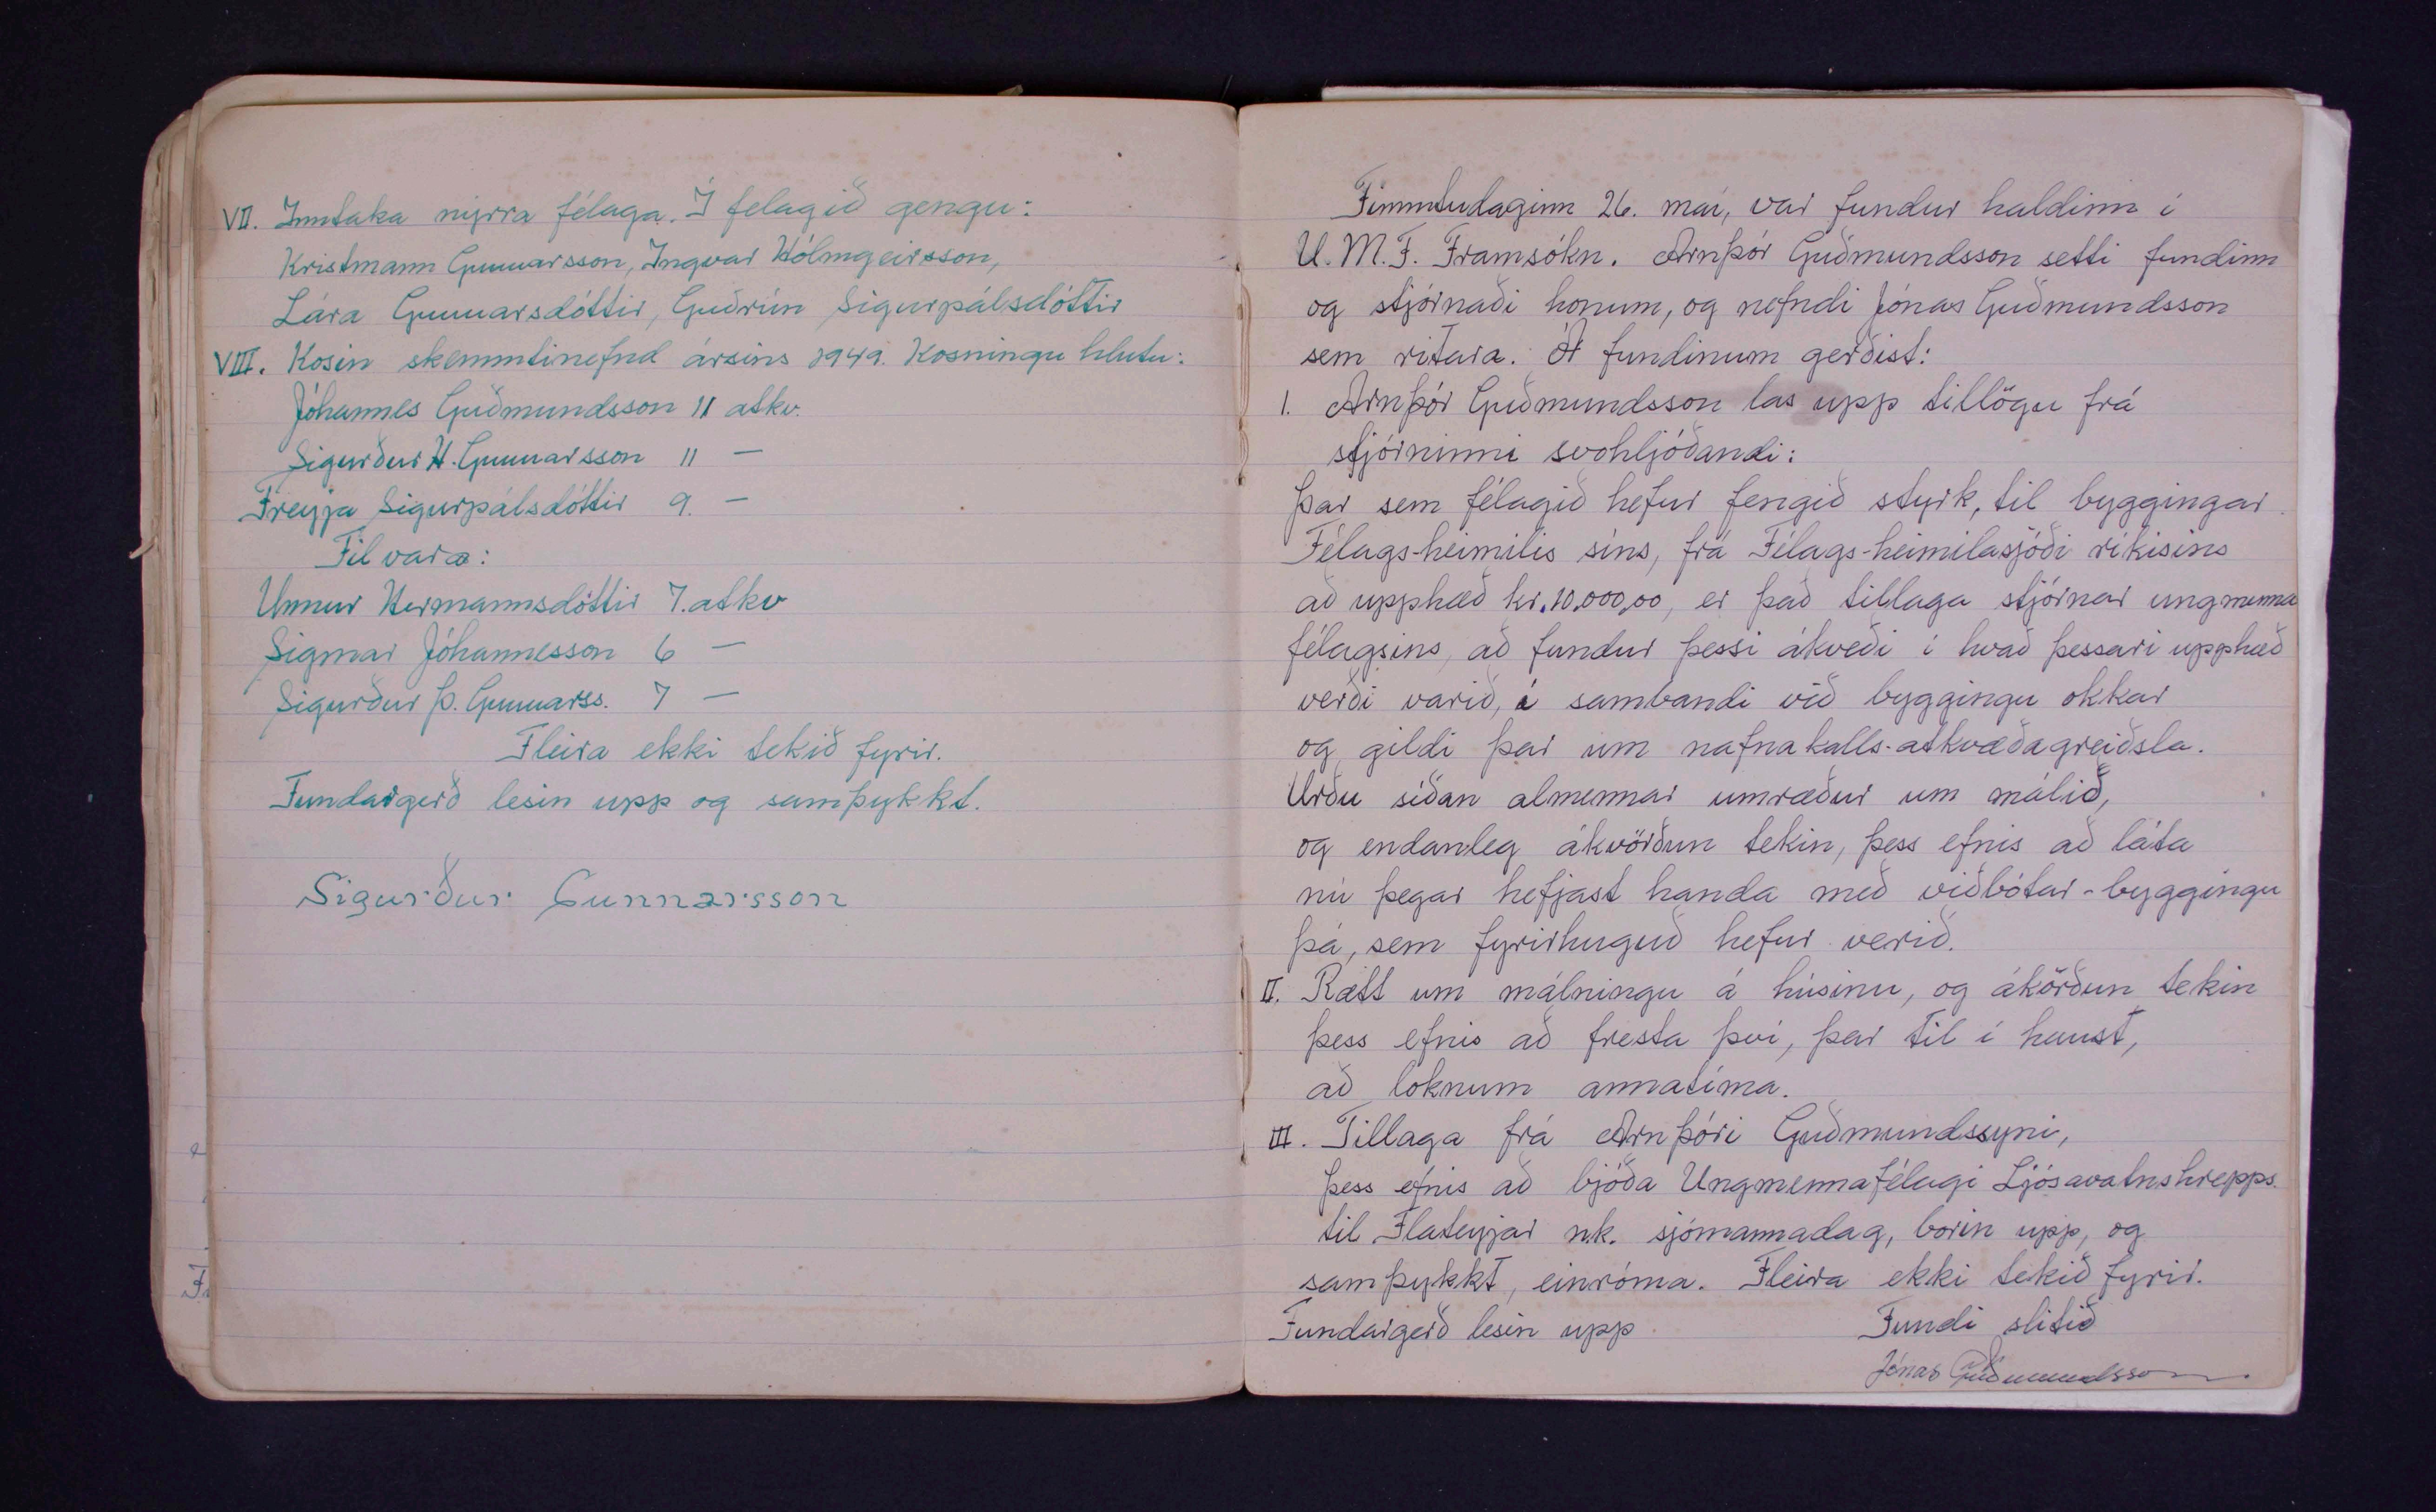 VII. Inntaka nýrra félaga. Í felagið gengu:
Kristmann Gunnarsson, Ingvar Hólmgeirsson,
Lára Gunnarsdóttir, Guðrún Sigurpálsdóttir
VIII. Kosin skemmtinefnd ársins 1949. Kosningu hlutu:
Jóhannes Guðmundsson 11 atkv.
Sigurður H. Gunnarsson 11 —
Freyja Sigurpálsdóttir 9. —
Til vara:
Unnur Hermannsdóttir 7. atkv
Sigmar Jóhannesson 6 —
Sigurður Þ. Gunnarss. 7 —
Fleira ekki tekið fyrir.
Fundargerð lesin upp og samþykkt.
Sigurður Gunnarsson
Fimmtudaginn 26. maí, var fundur haldinn í
U.M.F. Framsókn. Arnþór Guðmundsson setti fundinn
og stjórnaði honum, og nefndi Jónas Guðmundsson
sem ritara. Á fundinum gerðist:
1. Arnþór Guðmundsson las upp tillögu frá
stjórninni svohljóðandi:
Þar sem félagið hefur fengið styrk, til byggingar
Félags-heimilis síns, frá Félags-heimilasjóði ríkisins
að upphæð kr. 10.000,00, er það tillaga stjórnar ungmenna
félagsins, að fundur þessi ákveði í hvað þessari upphæð
verði varið, í sambandi við byggingu okkar
og gildi þar um nafnakalls-atkvæðagreiðsla.
Urðu síðan almennar umræður um málið,
og endanleg ákvörðun tekin, þess efnis að láta
nú þegar hefjast handa með viðbótar-byggingu
þá, sem fyrirhuguð hefur verið.
II. Rætt um málningu á húsinu, og ákörðun tekin
þess efnis að fresta því, þar til í haust,
að loknum annatíma.
III. Tillaga frá Arnþóri Guðmundssyni,
þess efnis að bjóða Ungmennafélagi Ljósavatnshrepps
til Flateyjar n.k. sjómannadag, borin upp, og
samþykkt, einróma. Fleira ekki tekið fyrir.
Fundargerð lesin upp Fundi slitið
Jónas Guðmundsson